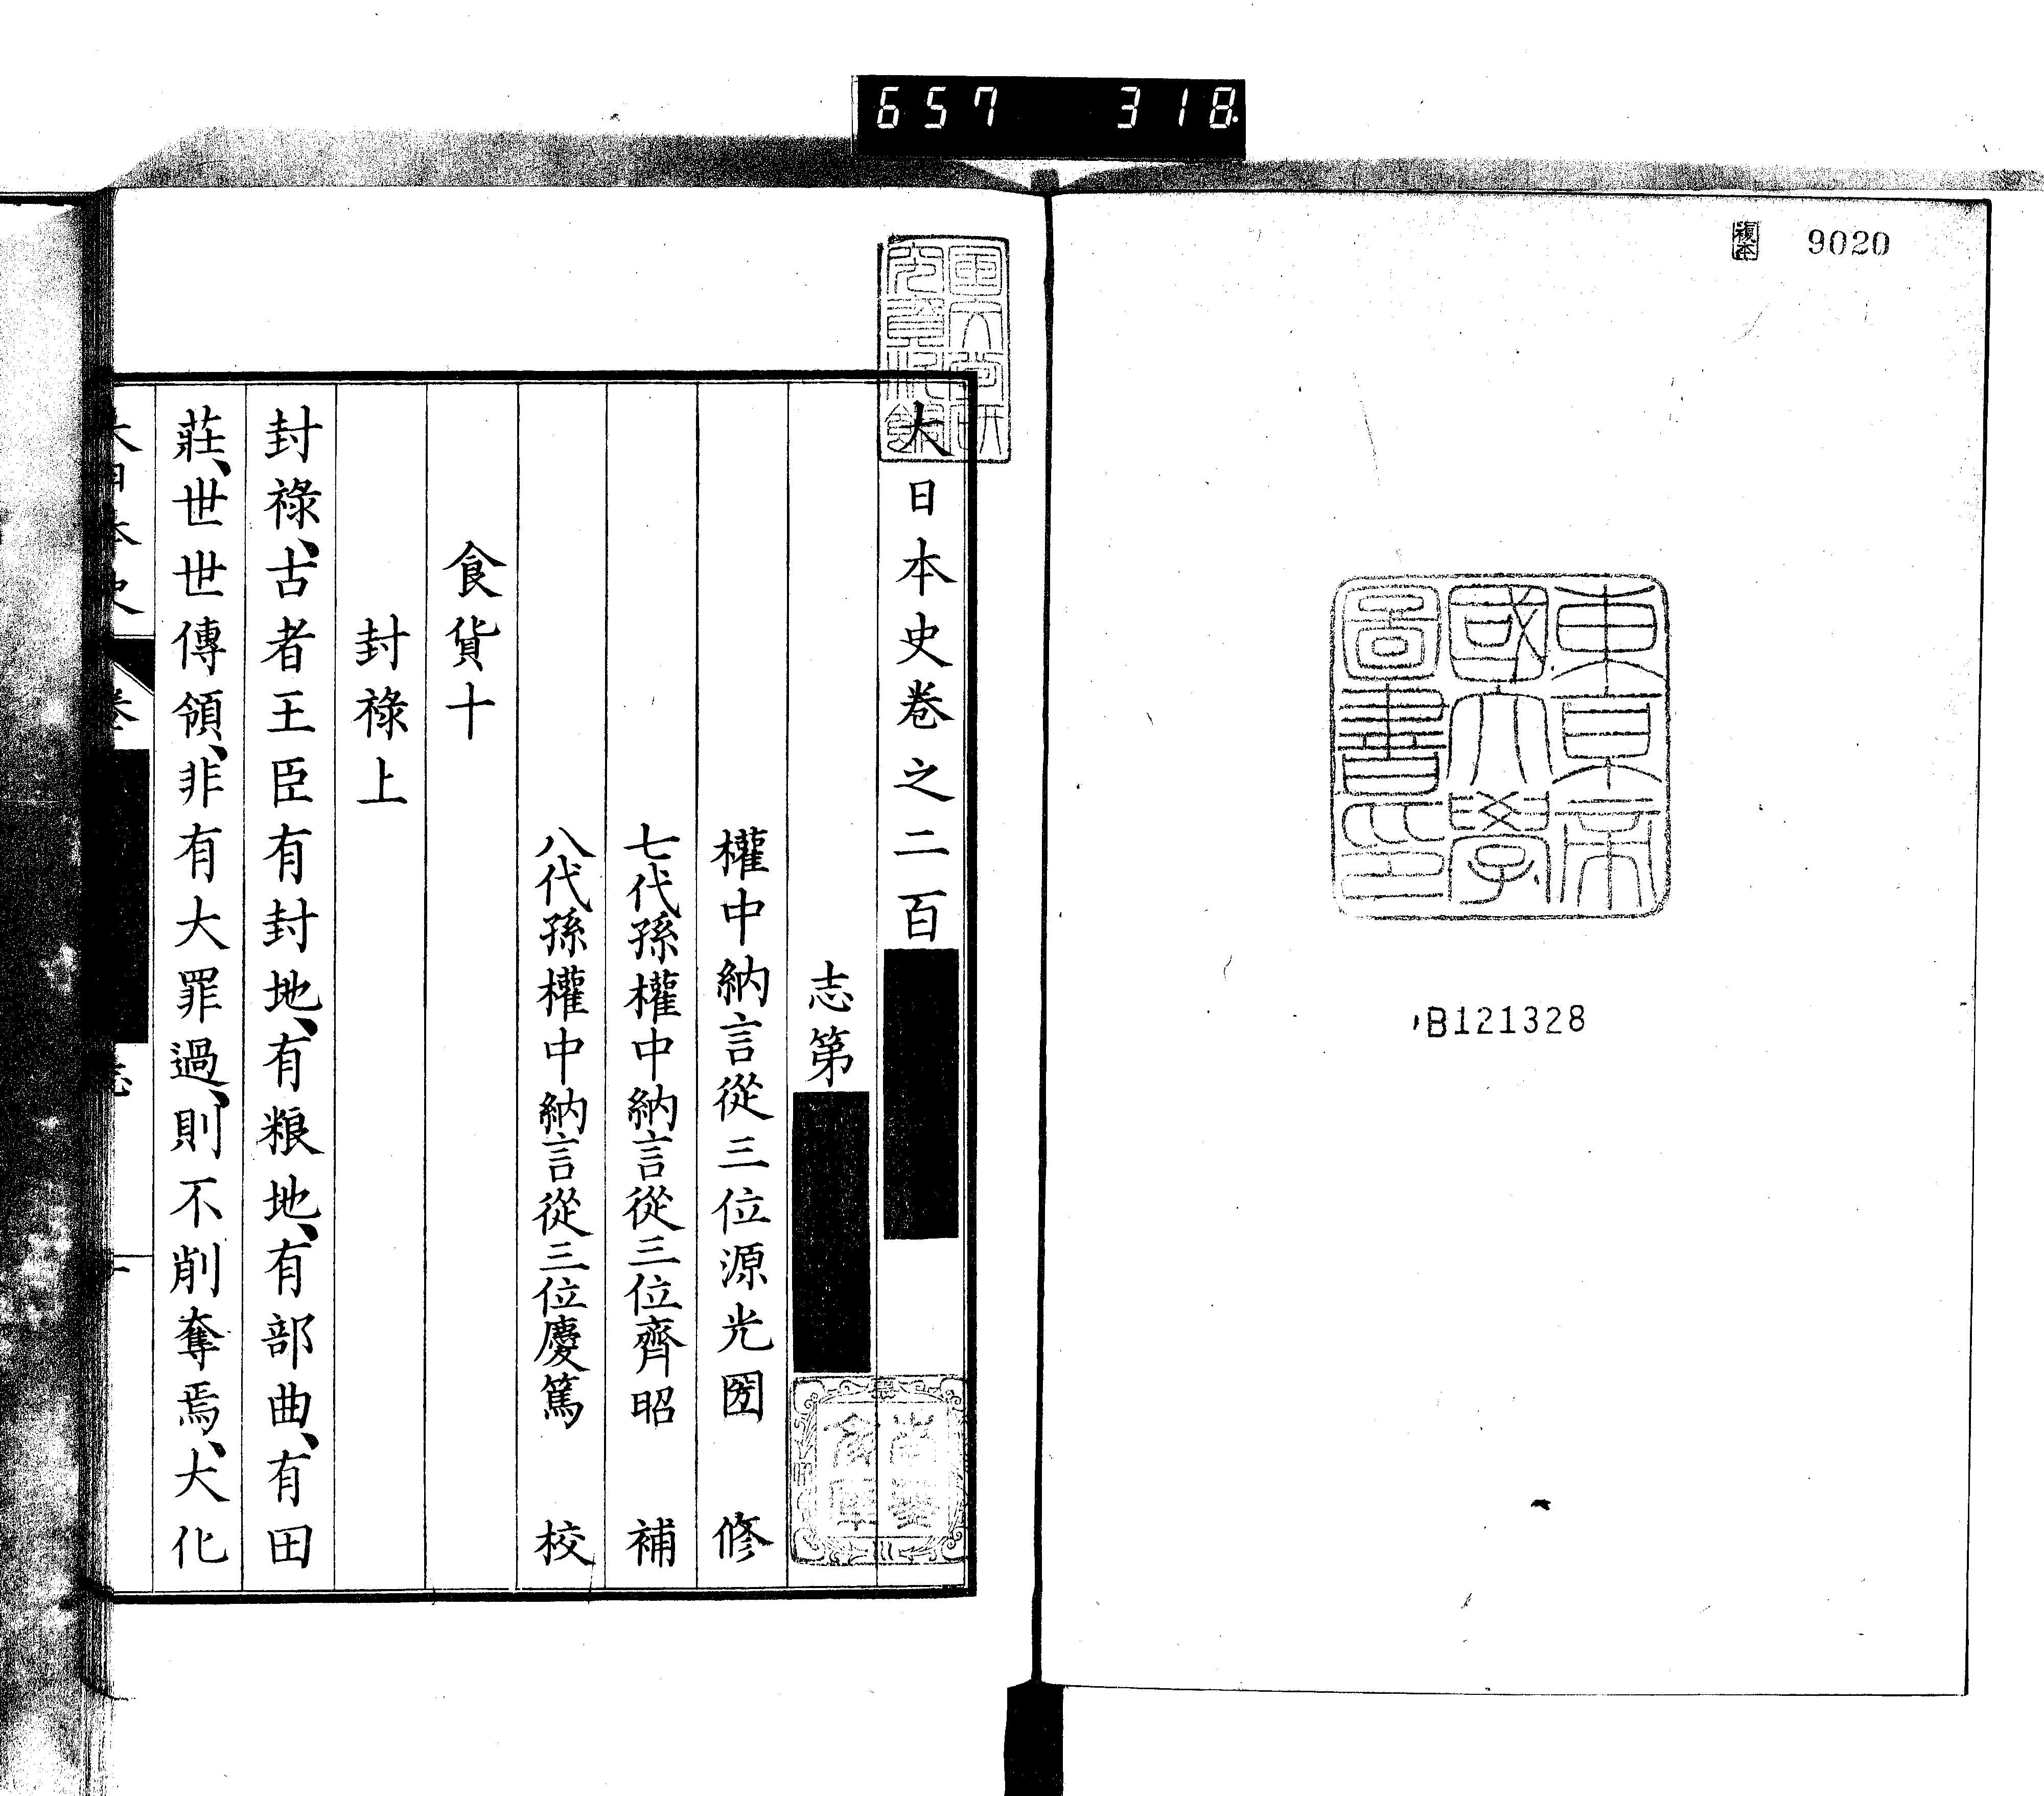 657 318
複本 9020
東京帝
國大學
圖書印
B121328
大日本史卷之二百
志第
權中納言從三位源光圀 修
七代孫權中納言從三位齊昭 補
八代孫權中納言從三位慶篤 校
食貨十
封祿上
封祿、古者王臣有封地、有粮地、有部曲、有田
莊、世世傳領、非有大罪過、則不削奪焉、大化
大日本史 卷 志 一